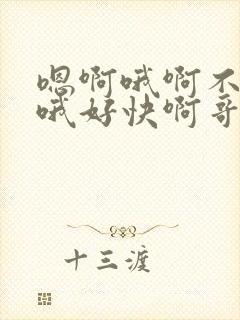 嗯啊哦啊不
哦好快啊哥
十三渡